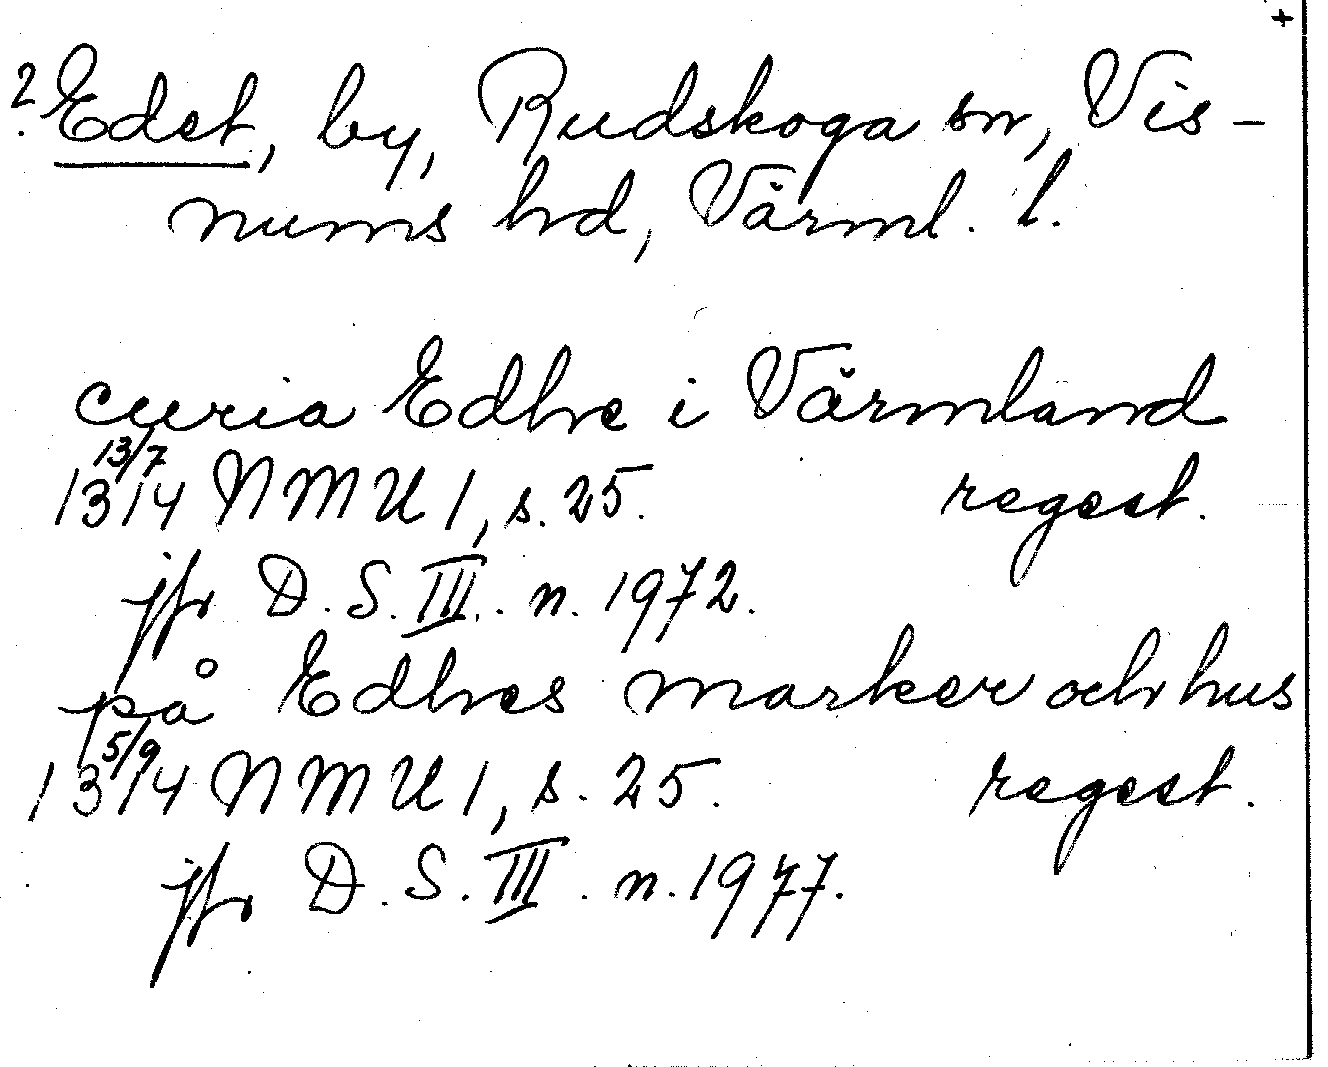 +
2. Edet, by, Rudskoga sn, Vis-
nums hd, Värml. l.
curia Edhe i Värmland
13/7
1314 NMU 1, s. 25. regest.
jfr D. S. III. n. 1972.
på Edhes marker och hus
5/9
1314 NMU 1, s. 25. regest.
jfr D. S. III. n. 1977.